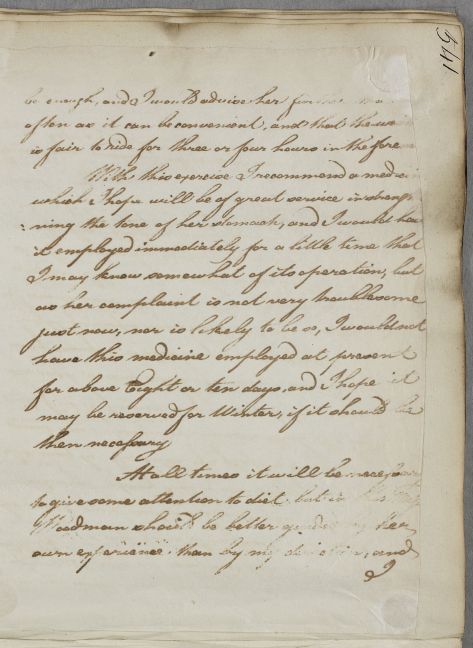 149
be enough, and I would advise her further
often as it can be convenient, and that the
is fair to ride for three or four hours in the fore
With this exercise I recommend a medicin
which I hope will be of great service in streng
:ning the tone of her stomach, and I would have
it employed immediately for a little time that
I may know somewhat of its operation, but
as her complaint is not very troublesome
just now, nor is likely to be so, I would not
have this medicine employed at present
for above Eight or ten days, and I hope it
may be reserved for Winter, if it should be
then necessary
At all times it will be necessary
to give some attention to diet, but in this
Woodman should be better guided by her
own experience than by my direction, and
I